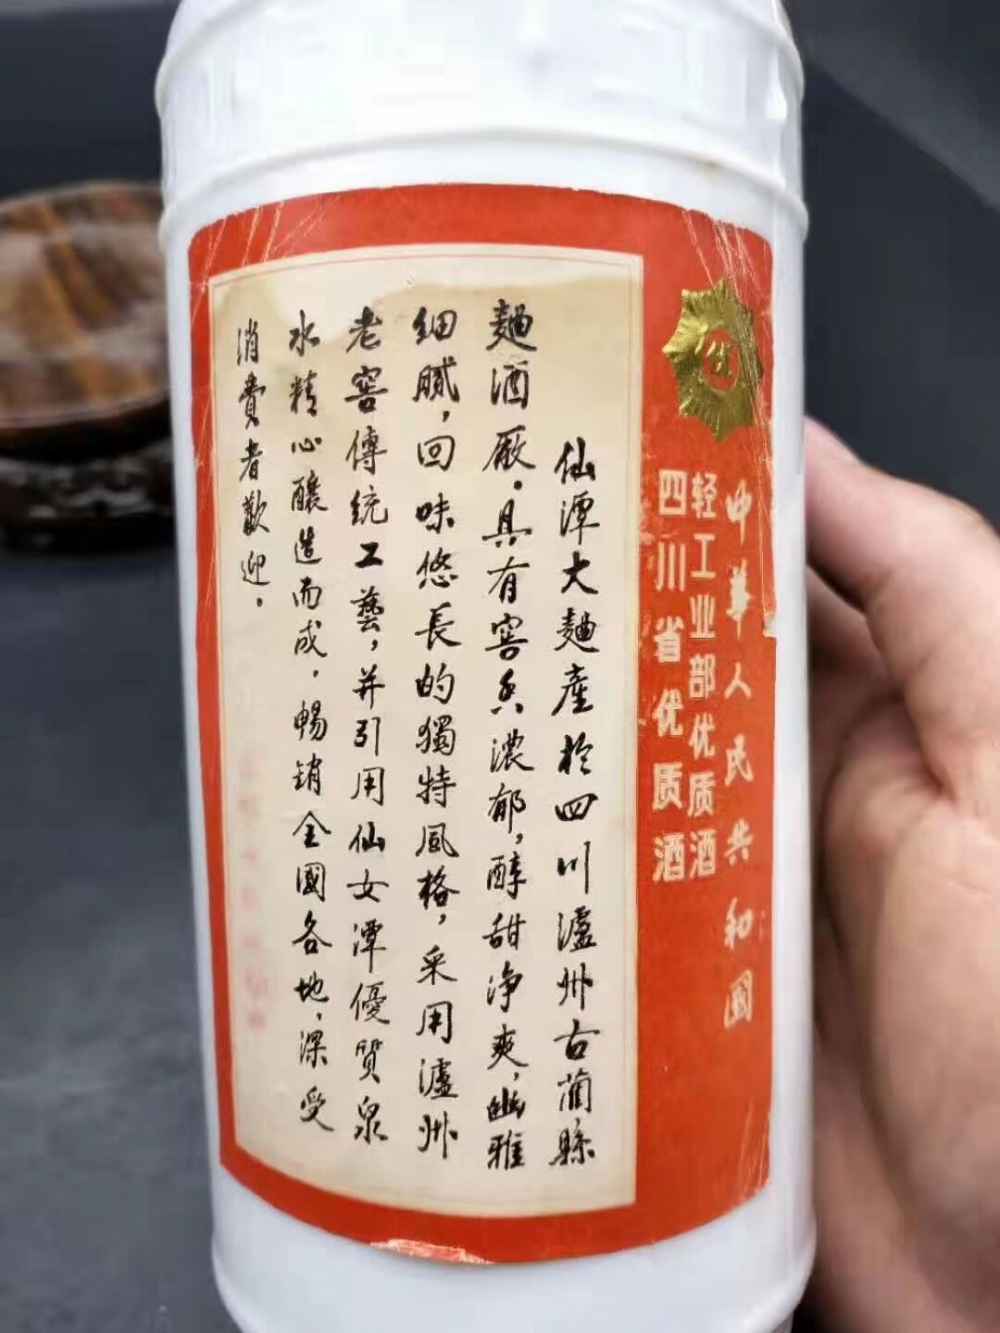 中華人民共和國
轻工业部优质酒
四川省优质酒
优
仙潭大麯產於四川瀘州古藺縣
麯酒厰。具有窖香濃郁，醇甜净爽，幽雅
细腻，回味悠長的獨特風格，采用瀘州
老窖傳統工藝，并引用仙女潭優質泉
水精心釀造而成，暢銷全國各地，深受
消費者歡迎。